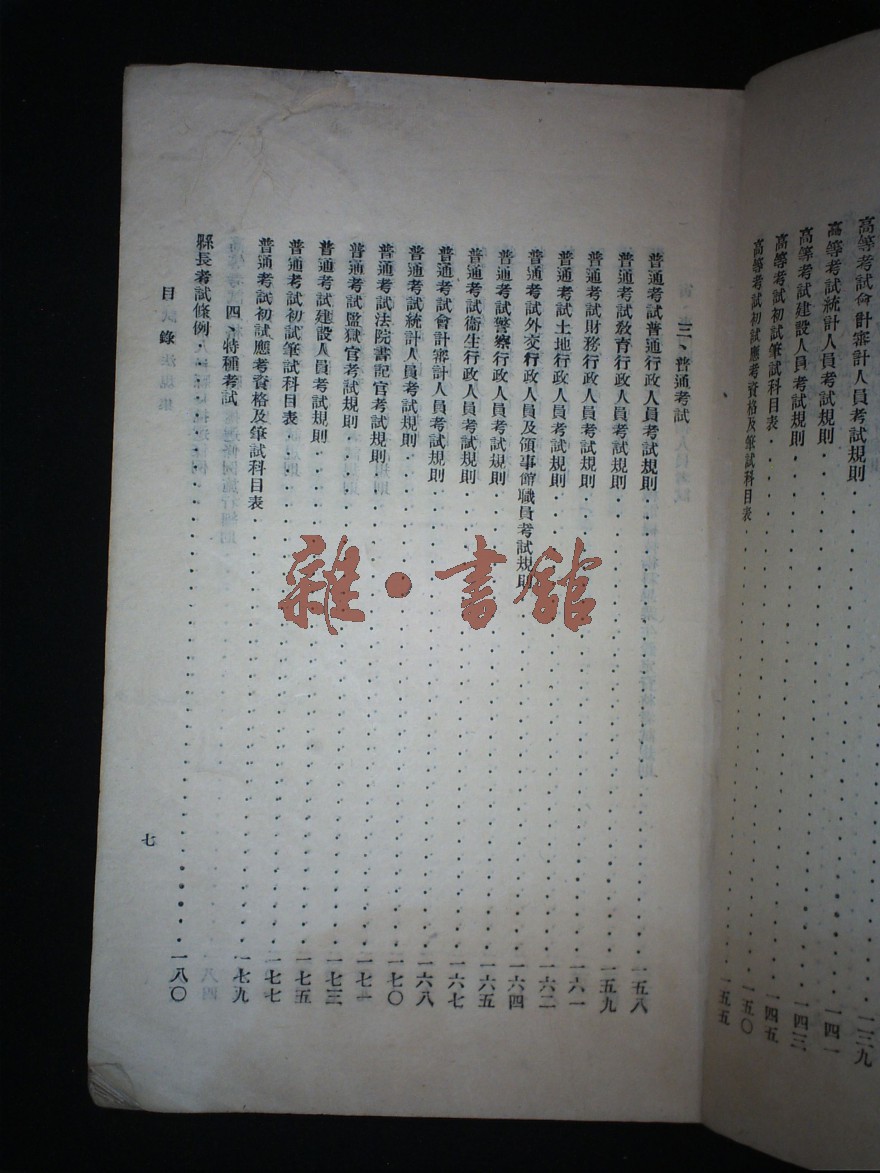 一三九
高等考試會計審計人員考試規則・・・一四一
高等考試統計人員考試規則・・・一四三
高等考試建設人員考試規則・・・一四五
高等考試初試筆試科目表・・・一五〇
高等考試初試應考資格及筆試科目表・・・一五五
三、普通考試
普通考試普通行政人員考試規則・・・一五八
普通考試教育行政人員考試規則・・・一五九
普通考試財務行政人員考試規則・・・一六一
普通考試土地行政人員考試規則・・・一六二
普通考試外交行政人員及領事館職員考試規則・・・一六四
普通考試警察行政人員考試規則・・・一六五
普通考試衞生行政人員考試規則・・・一六七
普通考試會計審計人員考試規則・・・一六八
普通考試統計人員考試規則・・・一七〇
普通考試法院書記官考試規則・・・一七一
普通考試監獄官考試規則・・・一七三
普通考試建設人員考試規則・・・一七五
普通考試初試筆試科目表・・・一七七
普通考試初試應考資格及筆試科目表・・・一七九
四、特種考試
縣長考試條例・・・一八〇
目錄
七
雜・書館